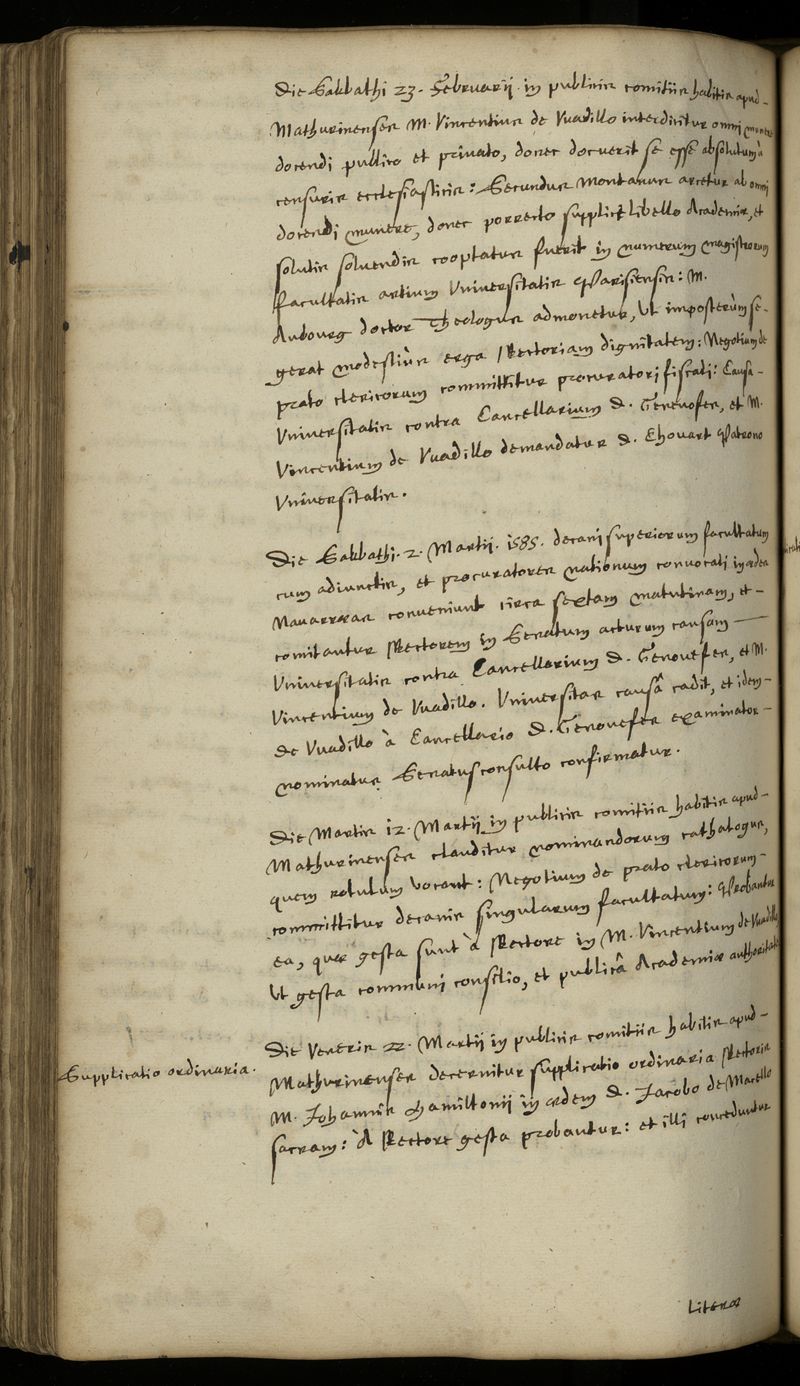 Die Sabbathi 23. Februarij. in publicis comitiis habitis apud-
Mathurinenses M. Vincentius de Vuadillo interdicitur omni munere
docendi publico et privato, donec docuerit se esse absolutum à
censuris ecclesiasticis: Secundus Montanus arcetur ab omni
docendi munere, donec porrecto supplici libello Academiae, et
solutis solvendis cooptatus fuerit in numerum magistrorum
facultatis artium Universitatis Parisiensis: M.
Aubourg doctor Theologus admonetur, Ut imposterùm se-
gerat modestiùs erga Rectoriam dignitatem: Negotium de
prato clericorum committitur procuratori fiscali: Causa-
Universitatis contra Cancellarium D. Genovefes, et M.
Vincentium de Vuadillo demandatur D. Chouart Patrono
Universitatis.
Die Sabbathi. 2. Martij. 1585. decani superiorum facultatum
cum adiunctis, et procuratores nationum convocati in aedes
Navarraeas conveniunt circa sextam matutinam, et-
comitantur Rectorem in Senatum acturum causam
Universitatis contra Cancellarium D. Genovefes, et M.
Vincentium de Vuadillo. Universitas causâ cadit, et idem-
de Vuadillo à Cancellario D. Genovefes examinator-
nominatus Senatusconsulto confirmatur.
Die Martis 12. Martij in publicis comitiis habitis apud-
Mathurinenses clauditur nominandorum cathalogus,
quem rotulum vocant: Negotium de prato clericorum-
committitur decanis singularum facultatum: Probantur
ea, quae gesta sunt à Rectore in M. Vincentium de Vuadillo
Ut gesta communi consilio, et publicâ Academiae authoritate
Die Veneris 22. Martij in publicis comitiis habitis apud-
Supplicatio ordinaria.
Mathurinenses decernitur supplicatio ordinaria Rectoris
M. Johannis Hamiltonij in aedem D. Jacobo de Macello
sacram: A Rectore gesta probantur: et illi conceduntur
Literae